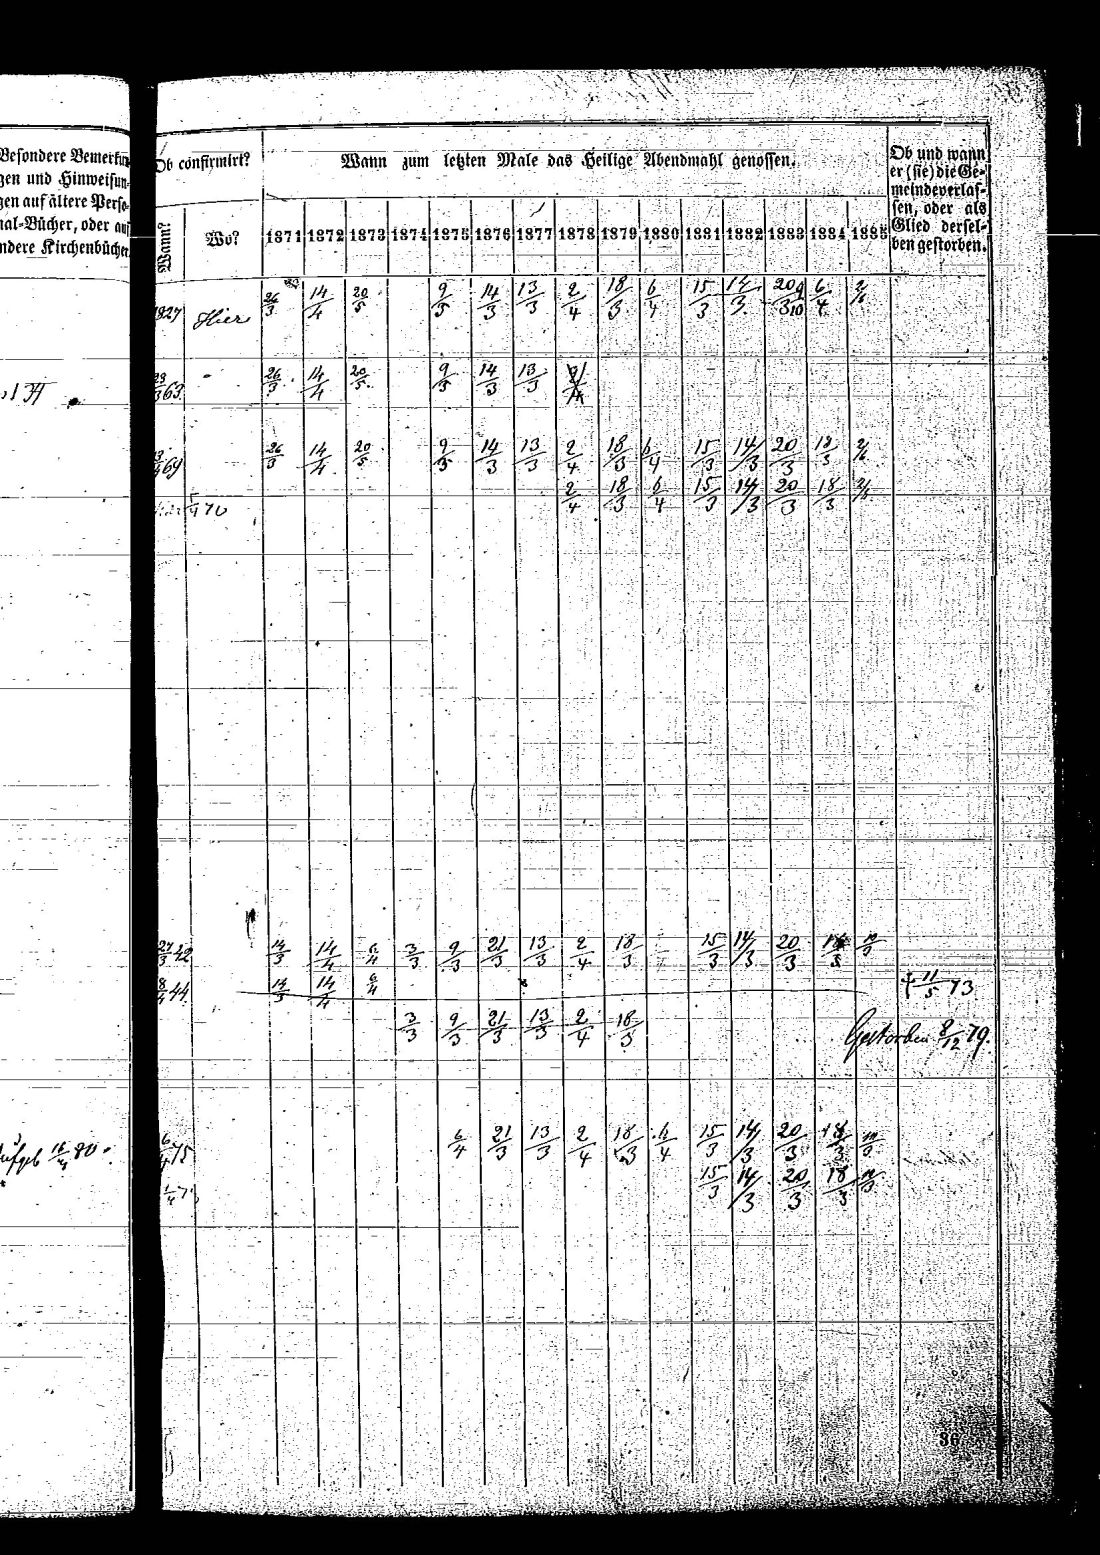 Besondere Bemerkun
gen und Hinweisun-
gen auf ältere Perso-
nal-Bücher, oder auf
ndere Kirchenbücher.
Ob confirmirt?
Wann?
Wo?
Wann zum letzten Male das Heilige Abendmahl genossen.
1871 1872 1873 1874 1875 1876 1877 1878 1879 1880 1881 1882 1883 1884 1885
Ob und wann
er (sie) die Ge-
meinde verlas-
sen, oder als
Glied dersel-
ben gestorben.
1827 Hier 26/3 14/4 20/5 9/3 14/3 13/3 2/4 18/3 6/4 15/3 14/3 20/3 6/4
63 26/3 14/4 20/5 9/3 14/3 13/3
69 26/3 14/4 20/5 9/3 14/3 13/3 2/4 18/3 6/4 15/3 14/3 20/3 18/3
70 2/4 18/3 6/4 15/3 14/3 20/3 18/3
42 14/3 14/4 6/4 3/3 9/3 21/3 13/3 2/4 18/3 15/3 14/3 20/3
8/4 44 14/3 14/4 6/4 † 11/5 73
3/3 9/3 21/3 13/3 2/4 18/3 Gestorben 8/12 79.
80. 6/4 75 6/4 21/3 13/3 2/4 18/3 6/4 15/3 14/3 20/3 18/3
15/3 14/3 20/3 18/3